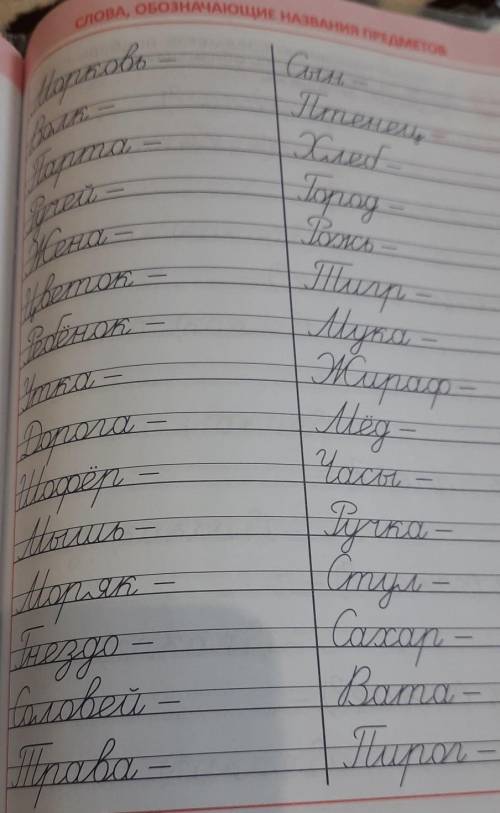 СЛОВА, ОБОЗНАЧАЮЩИЕ НАЗВАНИЯ ПРЕДМЕТОВ
Морковь –
Волк –
Парта –
Ручей –
Жена –
Цветок –
Ребёнок –
Утка –
Дорога –
Шофёр –
Мышь –
Моряк –
Гнездо –
Соловей –
Трава –
Сын –
Птенец –
Хлеб –
Город –
Рожь –
Тигр –
Мука –
Жираф –
Мёд –
Часы –
Ручка –
Стул –
Сахар –
Вата –
Пирог –